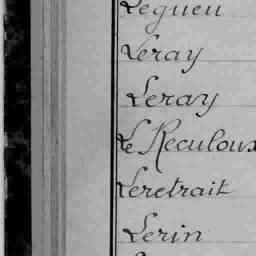 Legueu
Leray
Leray
Le Reculoux
Leretrait
Lerin